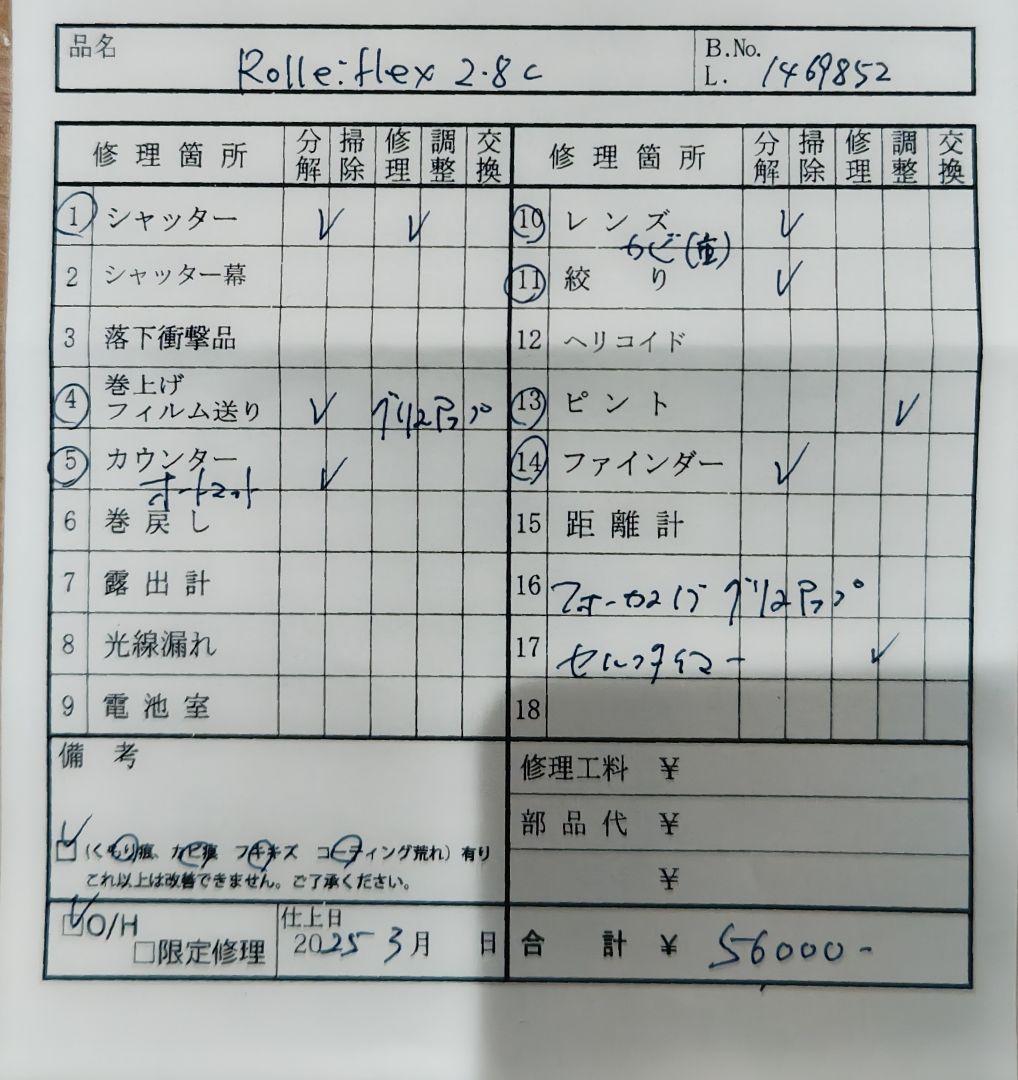 品名 Rolleiflex 2.8C B.No.
L. 1469852
修理箇所 分解 掃除 修理 調整 交換 修理箇所 分解 掃除 修理 調整 交換
1 シャッター ✓ ✓ 10 レンズ ✓
カビ
2 シャッター幕 11 絞り ✓
3 落下衝撃品 12 ヘリコイド
4 巻上げ
フィルム送り ✓ グリスアップ 13 ピント ✓
5 カウンター ✓ 14 ファインダー ✓
オートマット
6 巻戻し 15 距離計
7 露出計 16 フォーカシング グリスアップ
8 光線漏れ 17 セルフタイマー ✓
9 電池室 18
備考 修理工料 ¥
部品代 ¥
✓ (くもり痕、カビ痕 フキキズ コーティング荒れ) 有り
これ以上は改善できません。ご了承ください。
¥
✓ O/H
□限定修理
仕上日
2025 3月 日
合計 ¥ 56000-